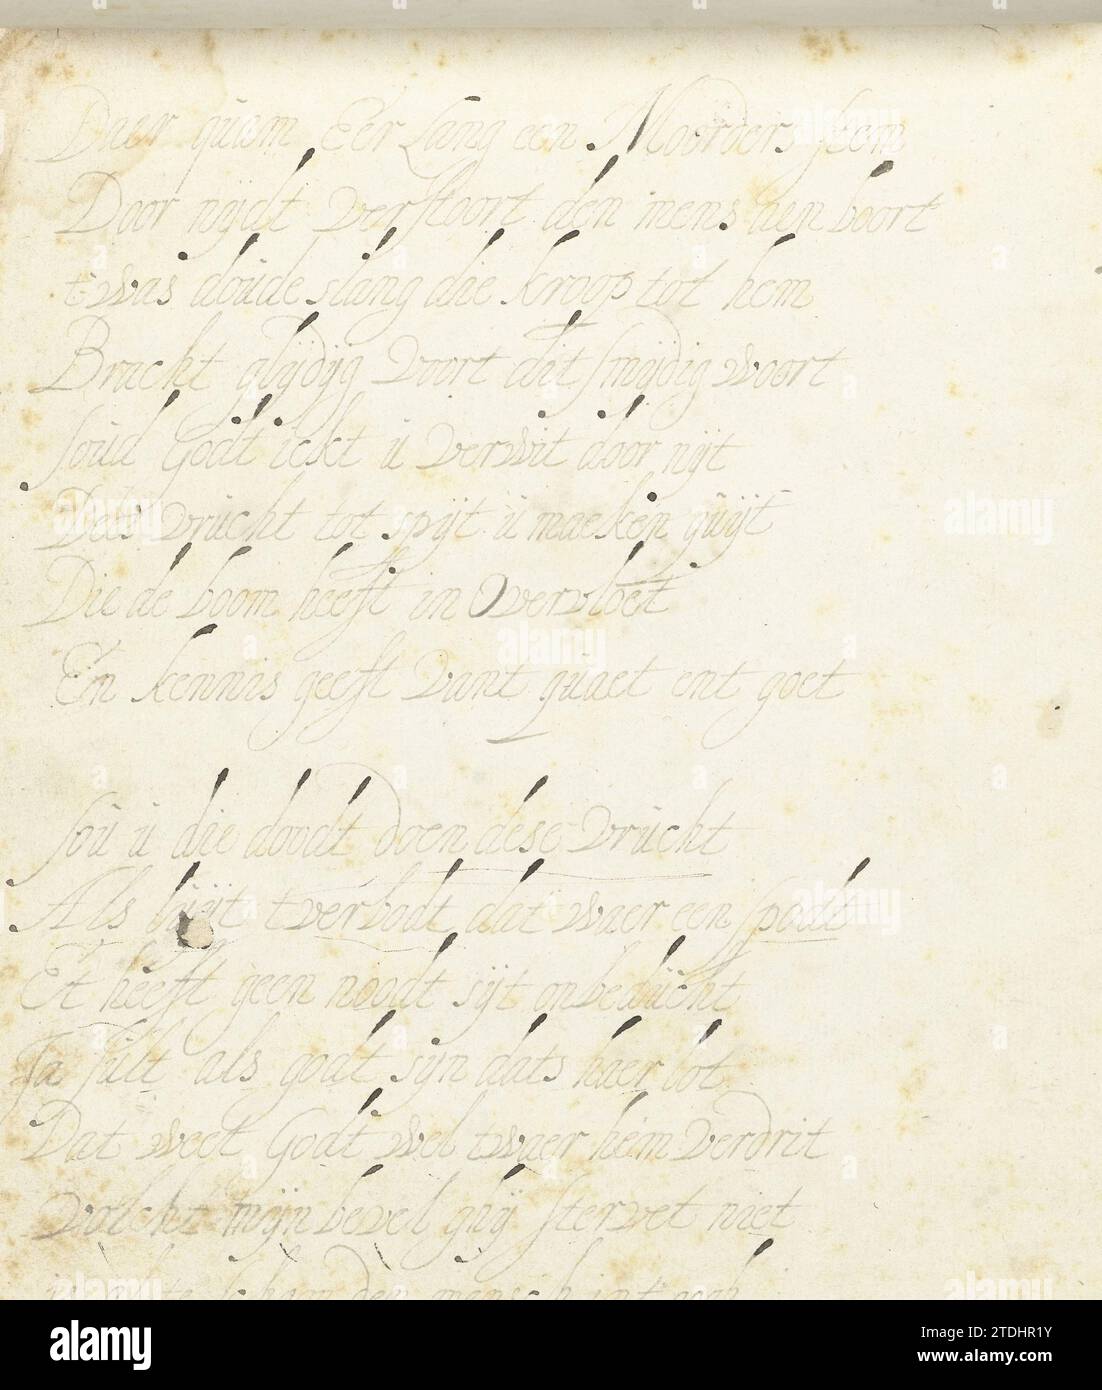 Daer quam Eer Lang een Moorders stem
Door nijdt Verstoort den mens hen boort
t'was doude slang die kroop tot hem
Bracht glijdijg Voort dit smijdig woort
soud Godt ickt u Verwit door nijt
Dees Vrucht tot spijt u maeken quijt
Die de boom heeft in Overvloet
En kennis geeft Vant quaet ent goet
sou u die doodt doen dese Vrucht
Als luijt tverbodt dat waer een spodt
Et heeft geen noodt sijt onbeducht
Ja sult als godt sijn dats haer lot
Dat weet Godt wel twaer hem Verdrit
Volcht mijn bevel ghij stervet niet
den mensch
alamy
Image ID: 2TDHR1Y
www.alamy.com